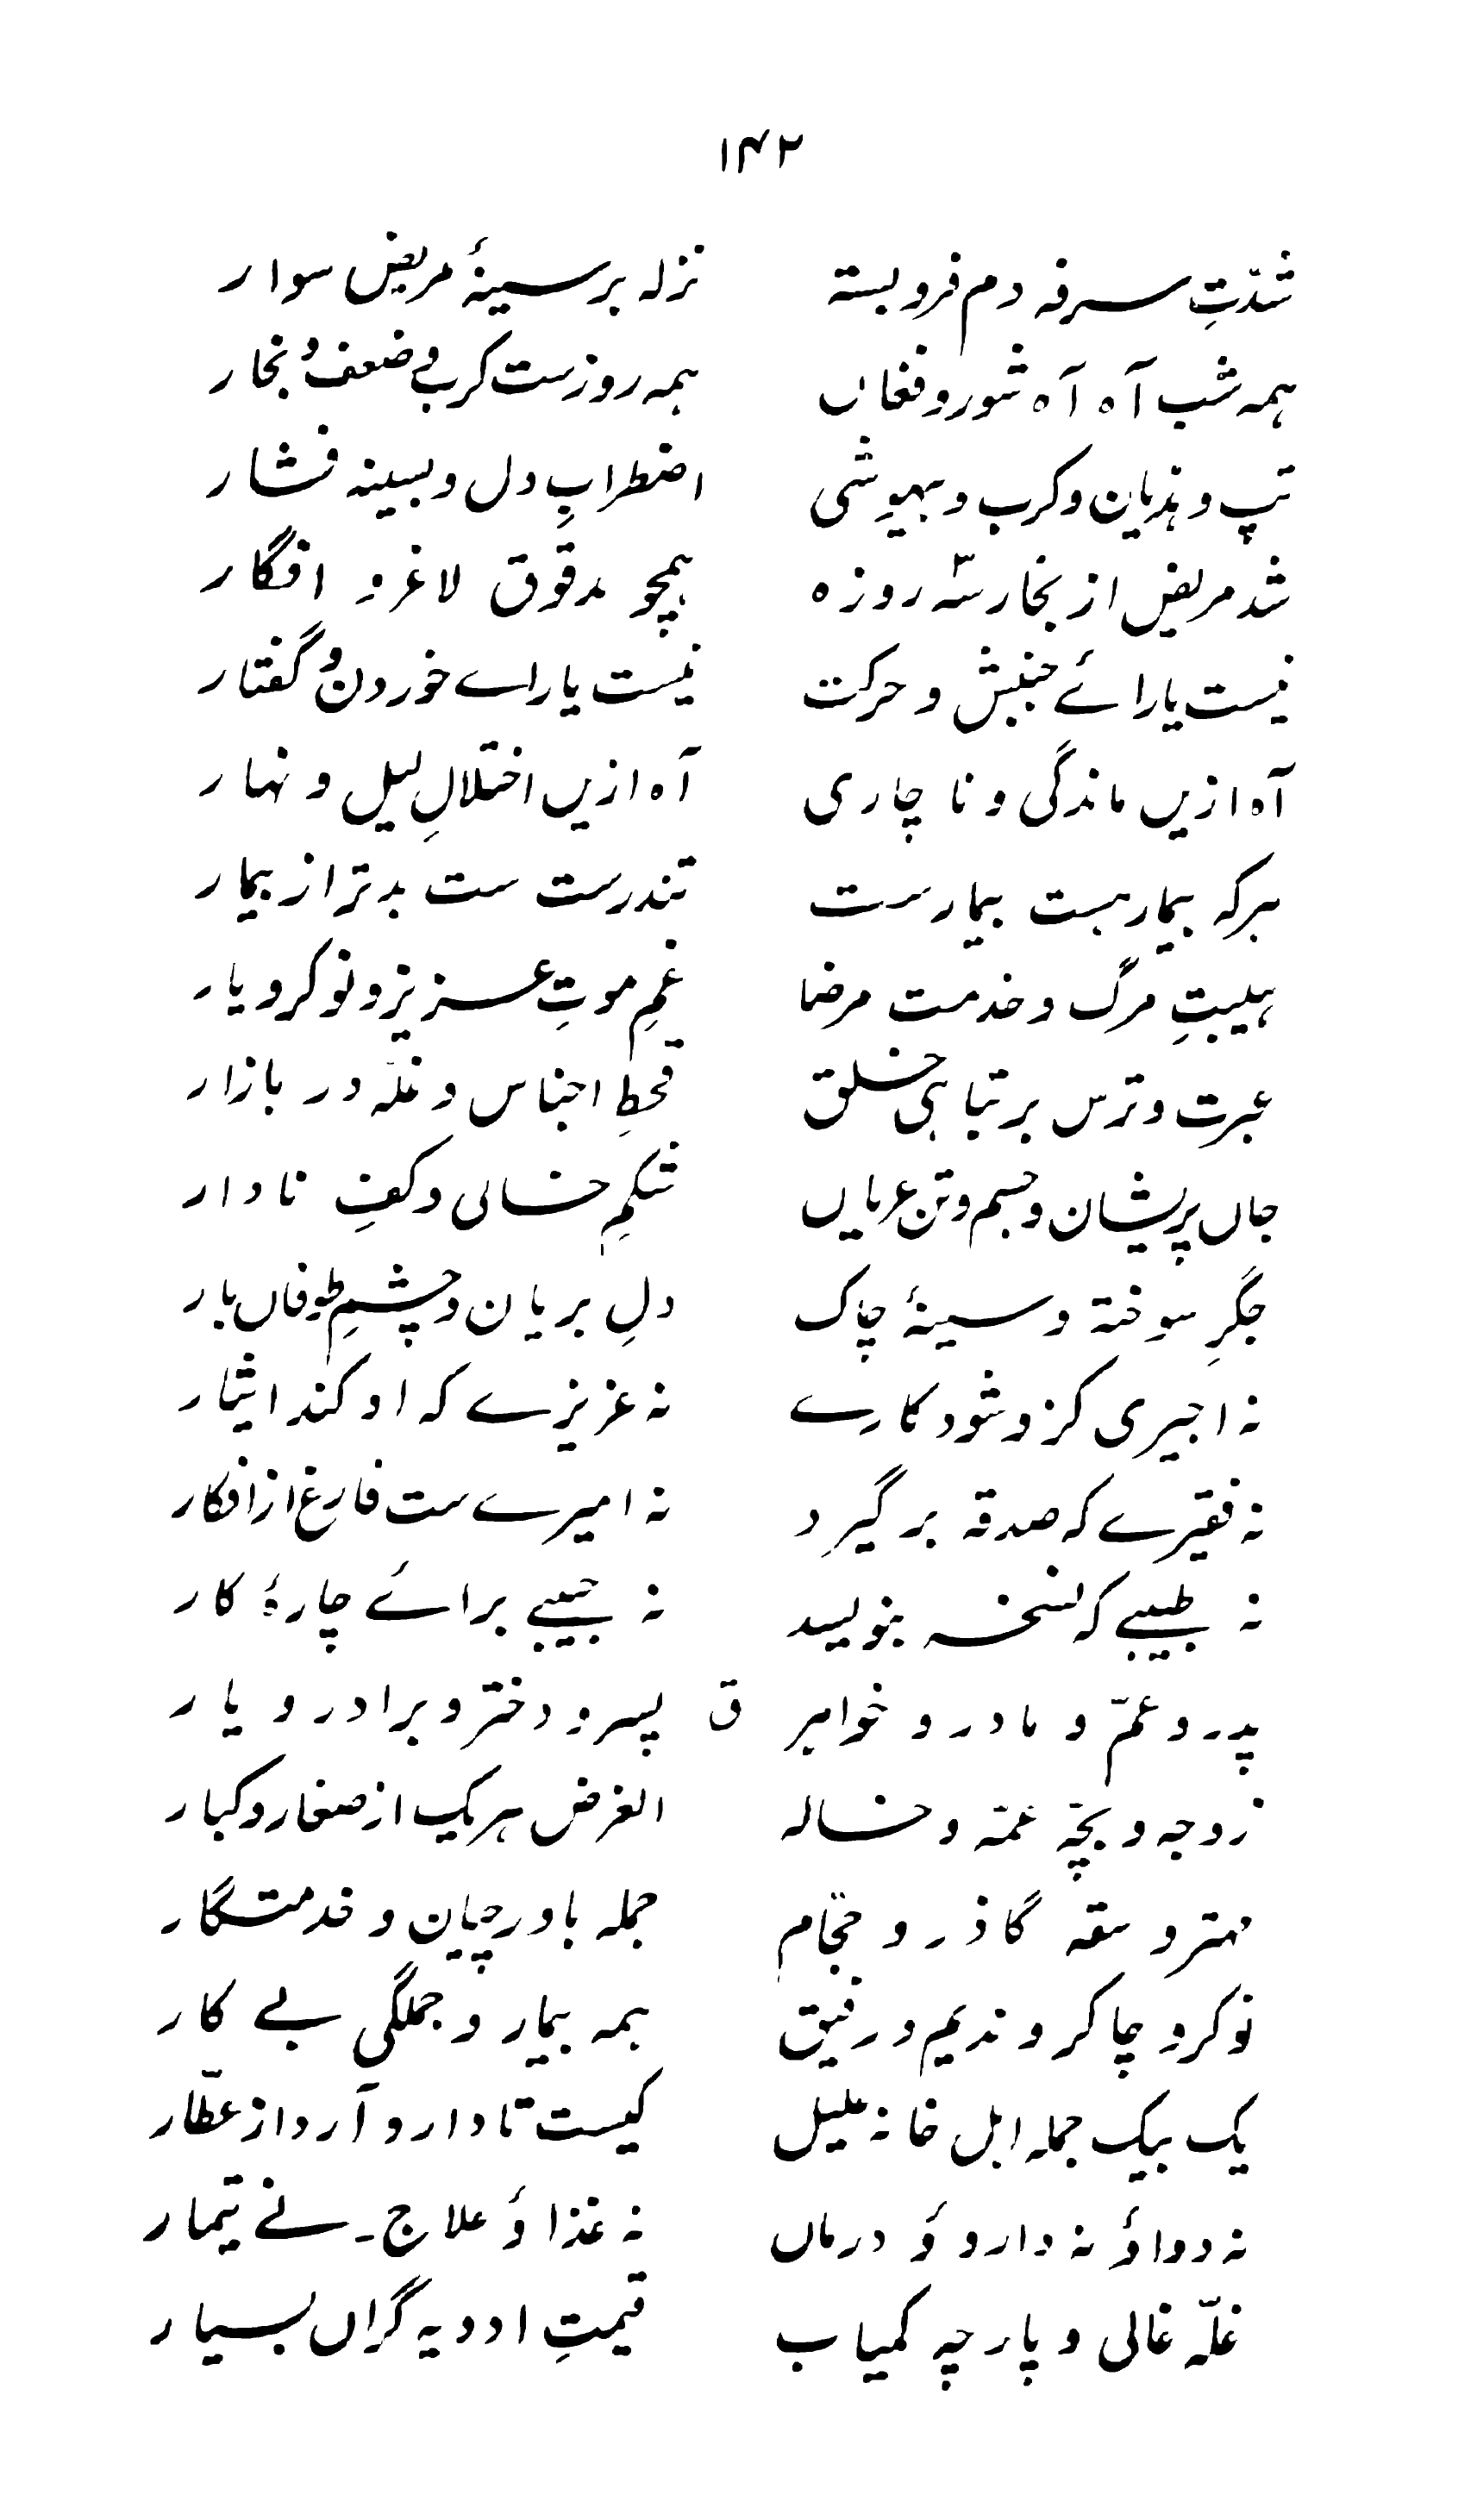 ۱۴۲
شدّتِ سرفہ دم فرو بستہ نزلہ بر سینۂ مریض سوار
ہمہ شب آہ آہ شور و فغاں ہمہ روزست کرب و ضعف و بخار
تپ و ہذیان و کرب و بیہوشی اضطرابِ دل و بسینہ فشار
شد مریض از بخار سہ روزہ ہمچو مدقوق لاغر و افگار
نیست یارائے جنبش و حرکت نیست یارائے خوردن و گفتار
آہ ازیں ماندگی و ناچاری آہ ازیں اختلالِ لیل و نہار
ہر کہ بیمار ہست بیمارست تندرست ست بدتر از بیمار
ہیبتِ مرگ و خدمت مرضا غمِ موتِ عزیز و نوکر و یار
عبرت و ترس بر تباہی خلق قحطِ اجناس و غلّہ در بازار
جاں پریشان و جسم و تن عریاں شکمِ خالی و کفِ نادار
جگرِ سوختہ و سینۂ چاک دلِ بریان و چشمِ طوفاں بار
نہ اجیری کزو شود کارے نہ عزیزے کہ او کند ایثار
نہ فقیرے کہ صدقہ بر گیرد نہ امیرے ست فارغ از افکار
نہ طبیبے کہ نسخہ بنویسد نہ حبیبے برائے چارۂ کار
پدر و عمّ و مادر و خواہر ق پسر و دختر و برادر و یار
زوجہ و بچّہ عمّہ و خالہ الغرض ہر یک از صغار و کبار
مہتر و سقہ گاذر و حجّام جملہ باورچیان و خدمتگار
نوکر و چاکر و ندیم و رفیق ہمہ بیمار و جملگی بے کار
یک بیک جملہ اہل خانہ علیل کیست تا دارو آرد از عطّار
نہ دوا ؤ نہ دارو ؤ درماں نہ غذا ؤ علاج۔ نے تیمار
غلّہ غالی و پارچہ کمیاب قیمتِ ادویہ گراں بسیار